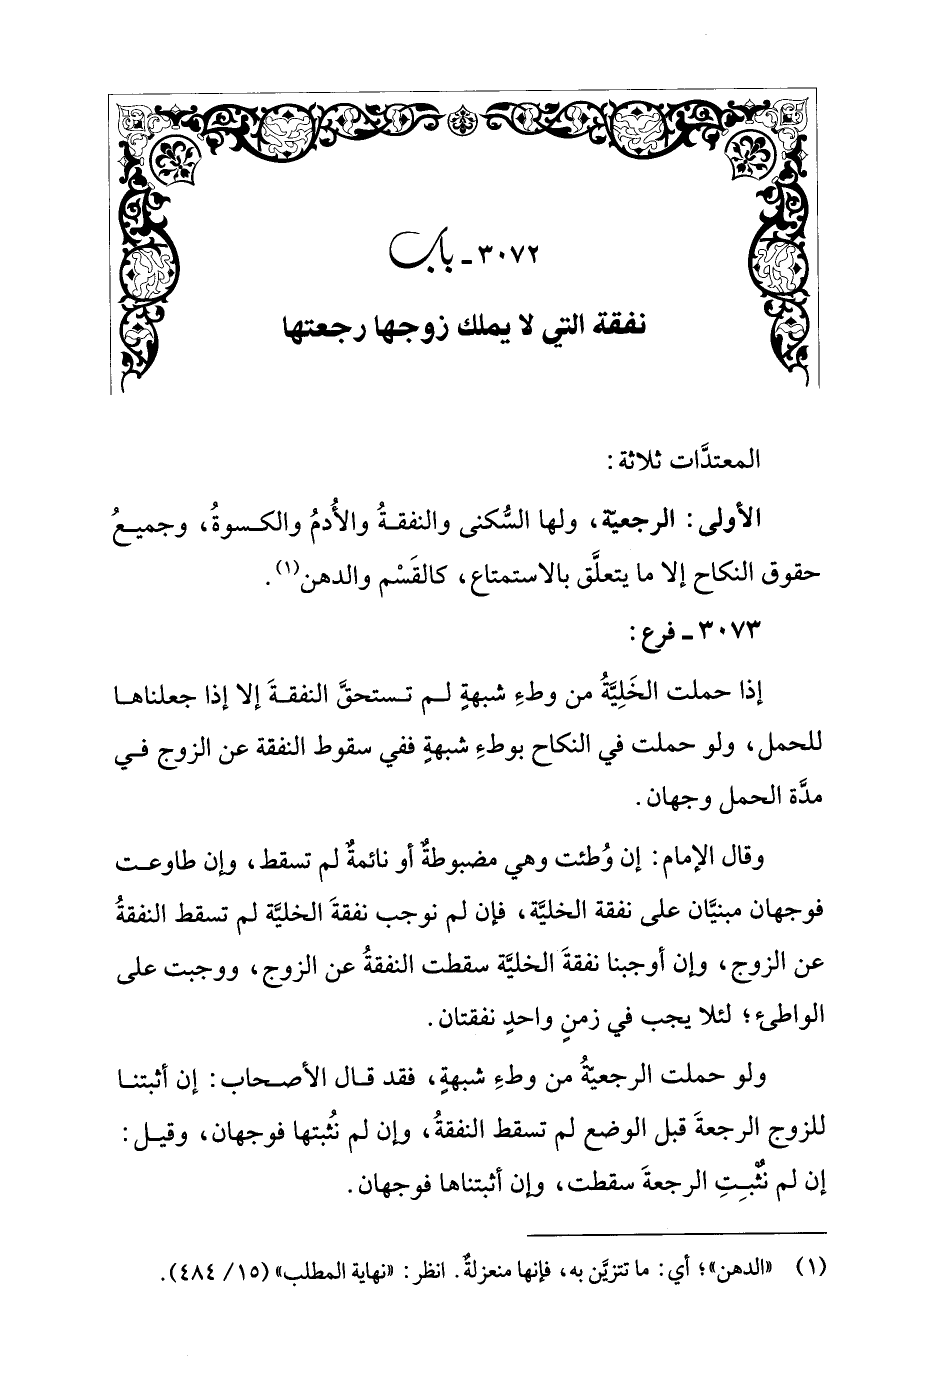 ٣٠٧٢ ـ باب
نفقة التي لا يملك زوجها رجعتها
المعتدَّات ثلاثة:
الأولى: الرجعيّة، ولها السُّكنى والنفقـةُ والأُدمُ والكـسوةُ، وجميـعُ
حقوق النكاح إلا ما يتعلَّق بالاستمتاع، كالقَسْم والدهن(١).
٣٠٧٣ ـ فرع:
إذا حملت الخَلِيَّةُ من وطءِ شبهةٍ لـم تـستحقَّ النفقـةَ إلا إذا جعلناهـا
للحمل، ولو حملت في النكاح بوطءِ شبهةٍ ففي سقوط النفقة عن الزوج فـي
مدَّة الحمل وجهان.
وقال الإمام: إن وُطئت وهي مضبوطةٌ أو نائمةٌ لم تسقط، وإن طاوعـت
فوجهان مبنيَّان على نفقة الخليَّة، فإن لم نوجب نفقةَ الخليَّة لم تسقط النفقةُ
عن الزوج، وإن أوجبنا نفقةَ الخليَّة سقطت النفقةُ عن الزوج، ووجبت على
الواطئ؛ لئلا يجب في زمنٍ واحدٍ نفقتان.
ولو حملت الرجعيّةُ من وطءِ شبهةٍ، فقد قـال الأصـحاب: إن أثبتنـا
للزوج الرجعةَ قبل الوضع لم تسقط النفقةُ، وإن لم نُثبتها فوجهان، وقيـل:
إن لم نُثْبِـتِ الرجعةَ سقطت، وإن أثبتناها فوجهان.
(١) «الدهن»؛ أي: ما تتزيَّن به، فإنها منعزلةٌ. انظر: «نهاية المطلب» (١٥/ ٤٨٤).